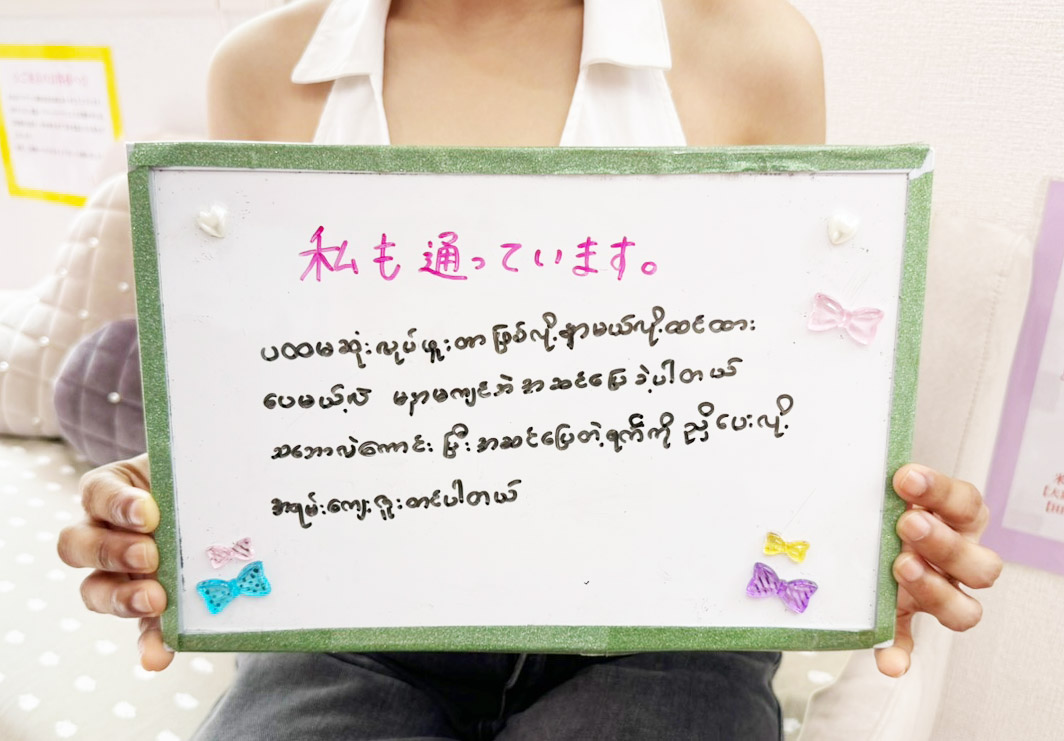 私も通っています。
ပထမဆုံးလုပ်ဖူးတာဖြစ်လို့နာမယ်လို့ထင်ထား
ပေမယ့်လဲ မနာမကျင်ဘဲအဆင်ပြေခဲ့ပါတယ်
သဘောလဲကောင်းပြီးအဆင်ပြေတဲ့ရက်ကိုညှိပေးလို့
အရမ်းကျေးဇူးတင်ပါတယ်